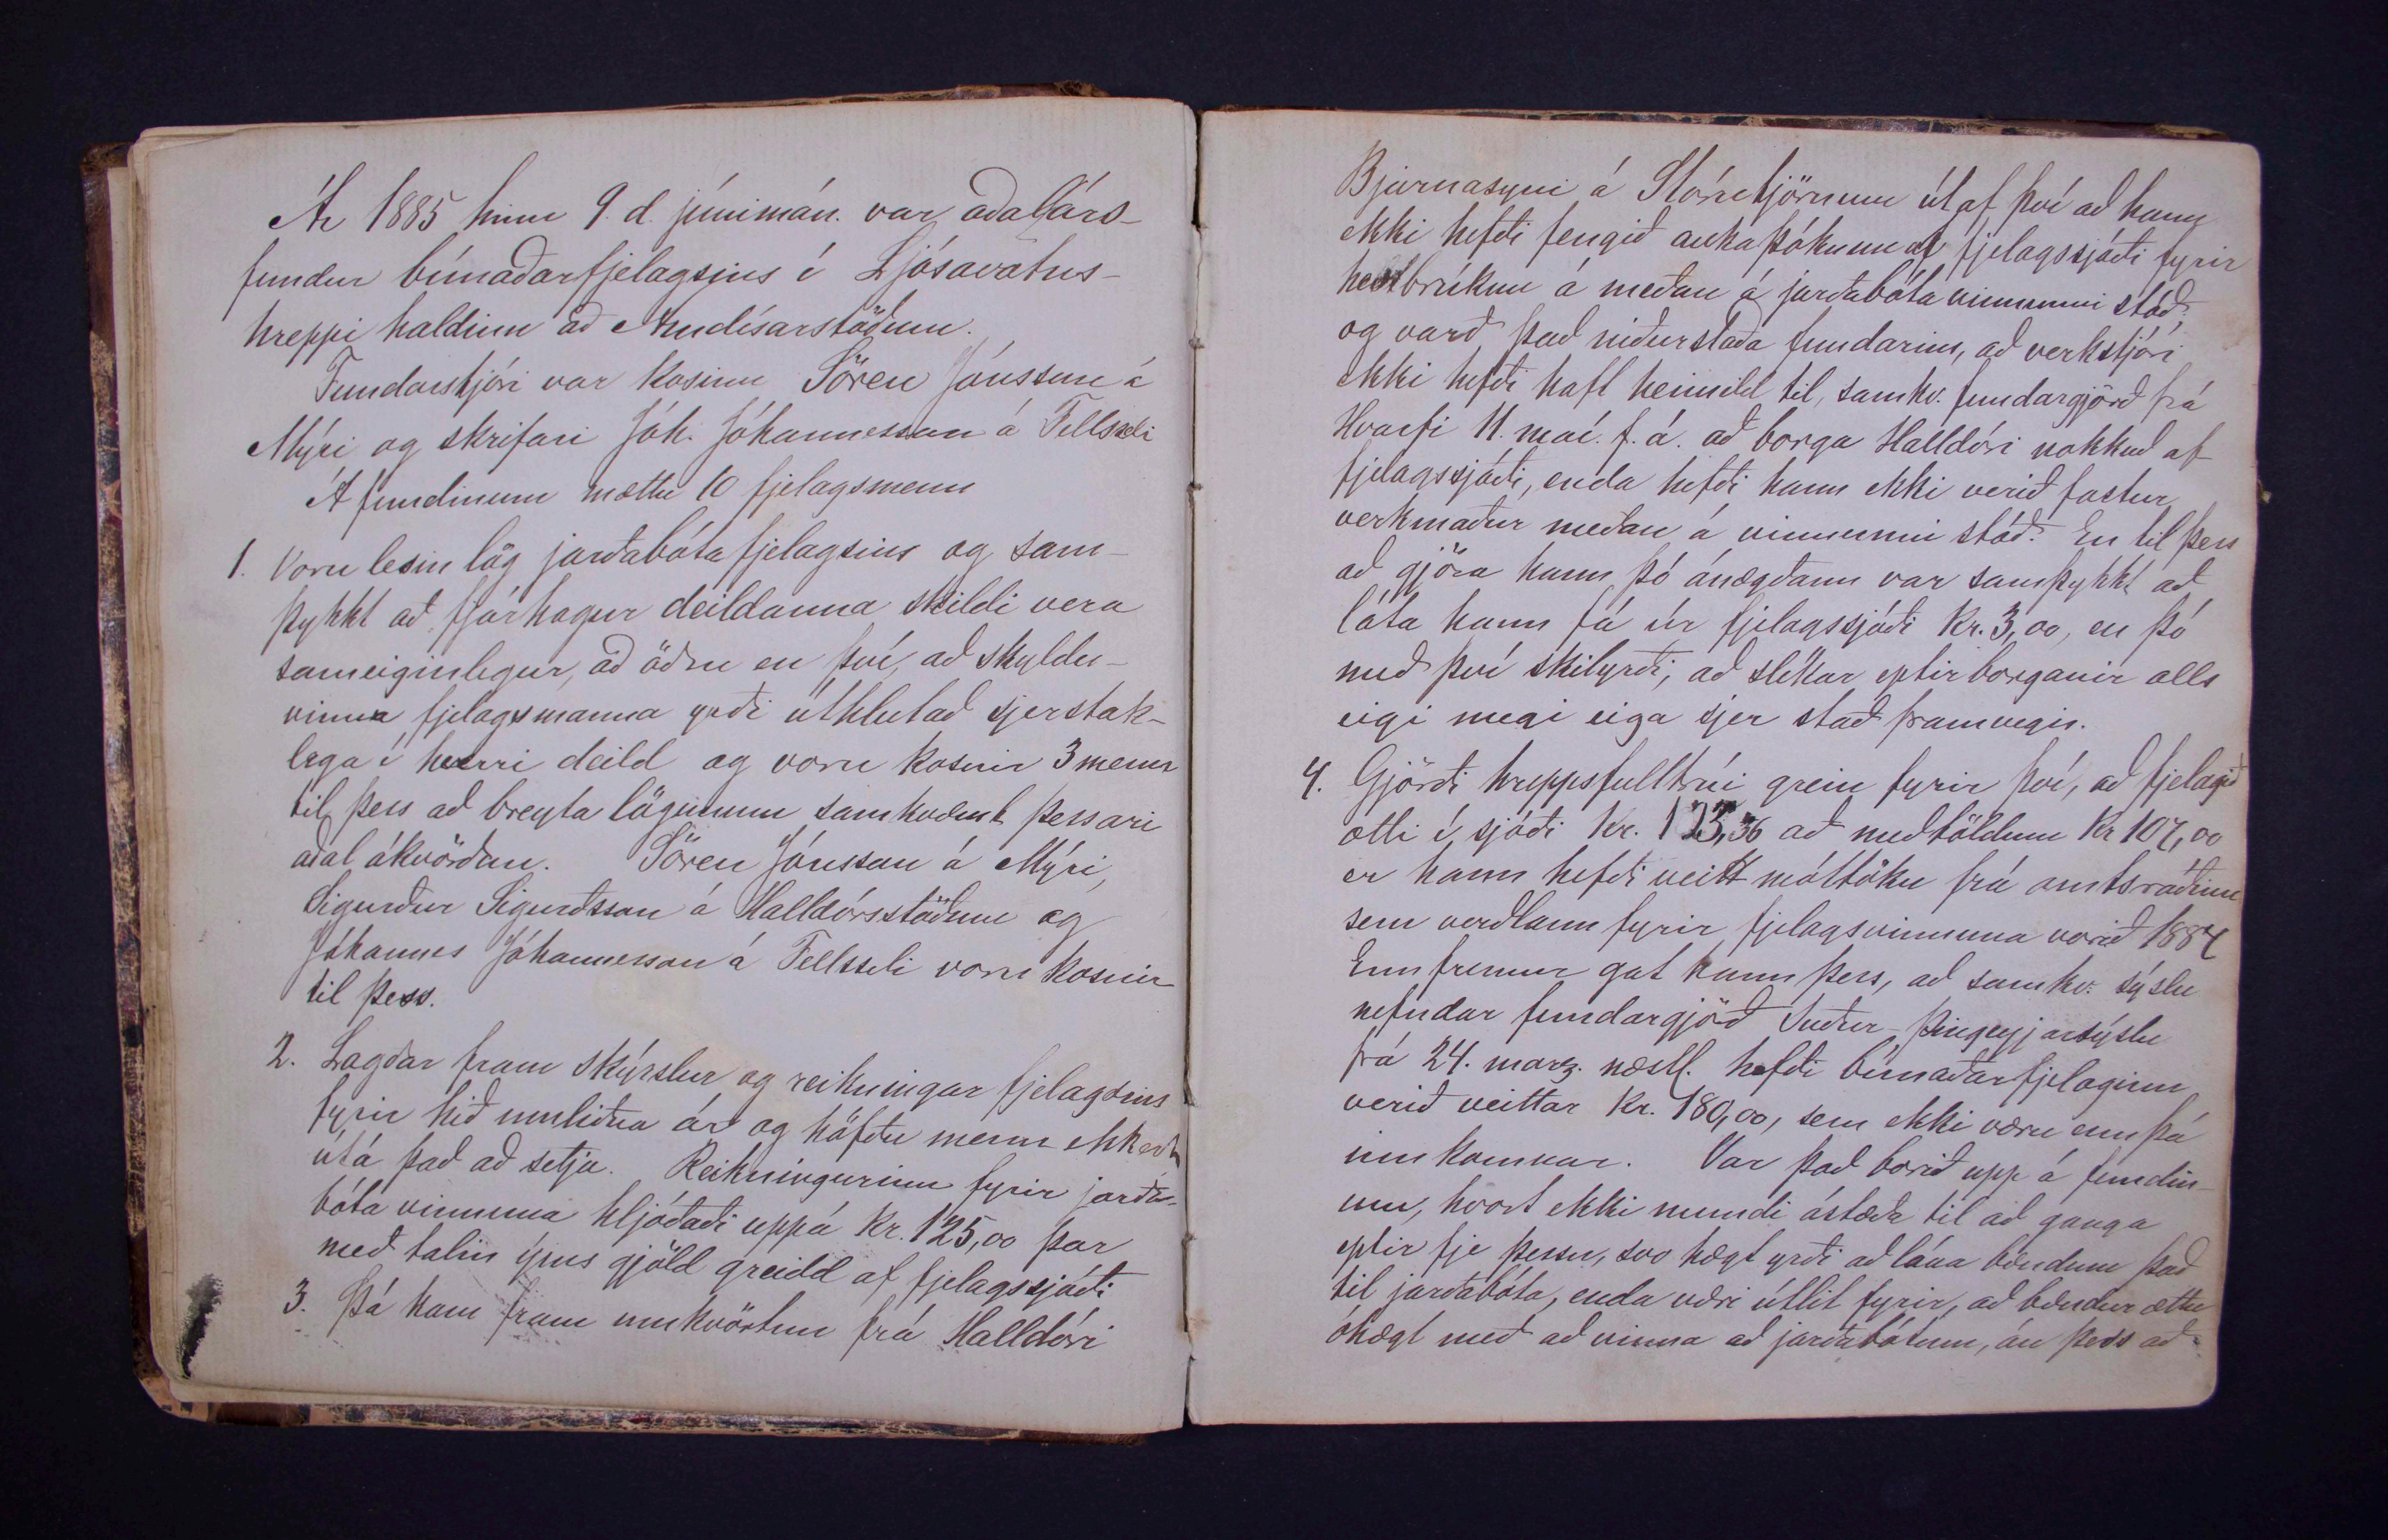 Ár 1885 hinn 9. d. júnímán. var aðalárs-
fundur búnaðarfjelagsins í Ljósavatns-
hreppi haldinn að Arndísarstöðum.
Fundarstjóri var kosinn Sören Jónsson á
Mýri og skrifari Jóh. Jóhannesson á Fellsseli
Á fundinum mættu 10 fjelagsmenn
1. Voru lesin lög jarðabótafjelagsins og sam-
þykkt að fjárhagur deildanna skildi vera
sameiginlegur, að öðru en því, að skyldu-
vinna fjelagsmanna yrði úthlutað sjerstak-
lega í hverri deild og voru kosnir 3 menn
til þess að breyta lögunum samkvæmt þessari
aðal ákvörðun. Sören Jónsson á Mýri,
Sigurður Sigurðsson á Halldórsstöðum og
Jóhannes Jóhannesson á Fellsseli voru kosnir
til þess.
2. Lagðar fram skýrslur og reikningar fjelagsins
fyrir hið umliðna ár og höfðu menn ekkert
útá það að setja. Reikningurinn fyrir jarða-
bóta vinnuna hljóðaði uppá Kr. 125,00 þar
með talin ýms gjöld greidd af fjelagssjóði
3. Þá kom fram umkvörtun frá Halldóri
Bjarnasyni á Stórutjörnum útaf því að hann
ekki hefði fengið aukaþóknun af fjelagssjóði fyrir
hestbrúkun á meðan á jarðabóta vinnunni stóð
og varð það niðurstaða fundarins, að verkstjóri
ekki hefði haft heimild til, samkv. fundargjörð frá
Hvarfi 11. maí. f. á. að borga Halldóri nokkuð af
fjelagssjóði, enda hefði hann ekki verið fastur
verkmaður meðan á vinnunni stóð. En til þess
að gjöra hann þó ánægðann var samþykkt að
láta hann fá úr fjelagssjóði Kr. 3,00, en þó
með því skilyrði, að slíkar eptirborganir alls
eigi megi eiga sjer stað framvegis.
4. Gjörði hreppsfulltrúi grein fyrir því, að fjelagið
ætti í sjóði Kr. 123,36 að meðtöldum Kr 107,00
er hann hefði veitt móttöku frá amtsráðinu
sem verðlaun fyrir fjelagsvinnuna vorið 1884
Enn fremur gat hann þess, að samkv. sýslu
nefndar fundargjörð Suður-Þingeyjarsýslu
frá 24. marz. næstl. hefði búnaðarfjelaginu
verið veittar Kr. 180,00, sem ekki væru enn þá
innkomnar. Var það borið upp á fundin-
um, hvort ekki mundi ástæða til að ganga
eptir fje þessu, svo hægt yrði að lána bændum það
til jarðabóta, enda væri útlit fyrir, að bændur ættu
óhægt með að vinna að jarðabótum, án þess að